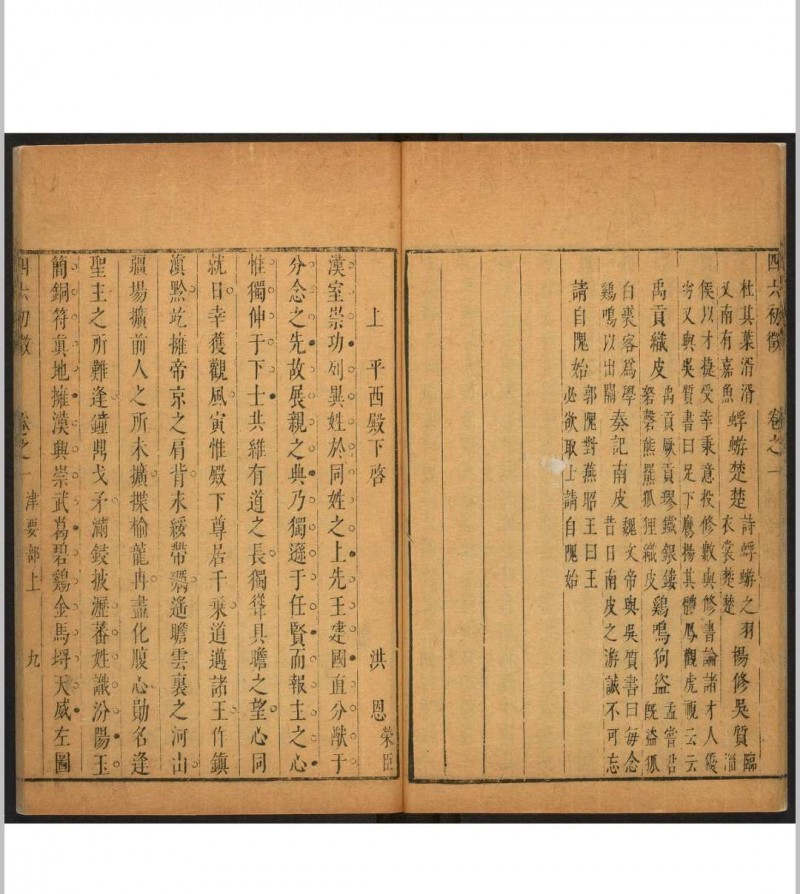 四六初徵 卷之一
杜其葉湑湑 又南有嘉魚 蜉蝣楚楚 詩蜉蝣之羽 衣裳楚楚 楊修吳質 臨淄
侯以才捷受幸秉意投修數與修書論諸才人優
劣又與吳質書曰足下鷹揚其體鳳觀虎視云云
禹貢織皮 禹貢厥貢璆鐵銀鏤 砮磬熊羆狐狸織皮 雞鳴狗盜 孟嘗君 既盜狐
白裘容爲學 雞鳴以出關 奏記南皮 魏文帝與吳質書曰每念 昔日南皮之游誠不可忘
請自隗始 郭隗對燕昭王曰王 必欲取士請自隗始
上 平西殿下啓 洪 恩 榮臣
漢室崇功列異姓於同姓之上先王建國直分猷于
分念之先故展親之典乃獨遜于任賢而報主之心
惟獨伸于下士共維有道之長獨聳具瞻之望心同
就日幸獲觀風寅惟殿下尊居千乘道邁諸王作鎮
滇黔屹擁帝京之肩背未綏帶礪遙瞻雲裏之河山
疆場擴前人之所未擴揲榆龍冉盡化腹心勛名逢
聖主之所難逢鐘鼎戈矛滿鈙披瀝蕃姓識汾陽玉
簡銅符眞地擁漢興崇武蒭碧鷄金馬埒天威左圖
四六初徵 卷之一 津要部上 九